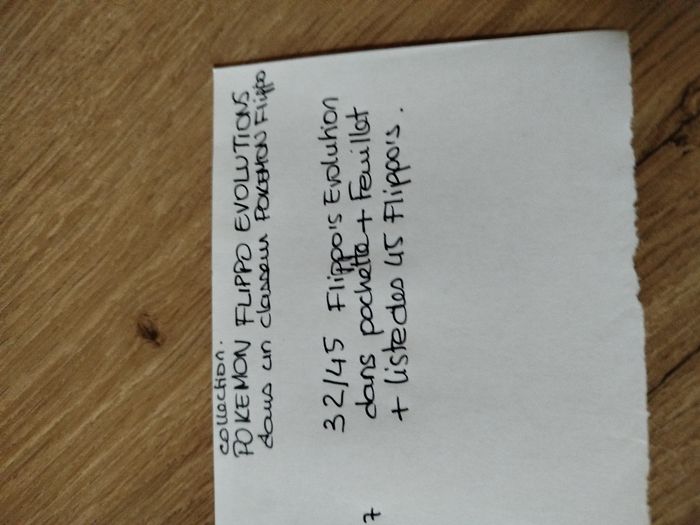 collection.
POKEMON FLIPPO EVOLUTIONS
dans un classeur POKEMON Flippo
32/45 Flippo's Evolution
dans pochette + Feuillet
+ liste des 45 Flippo's.
7